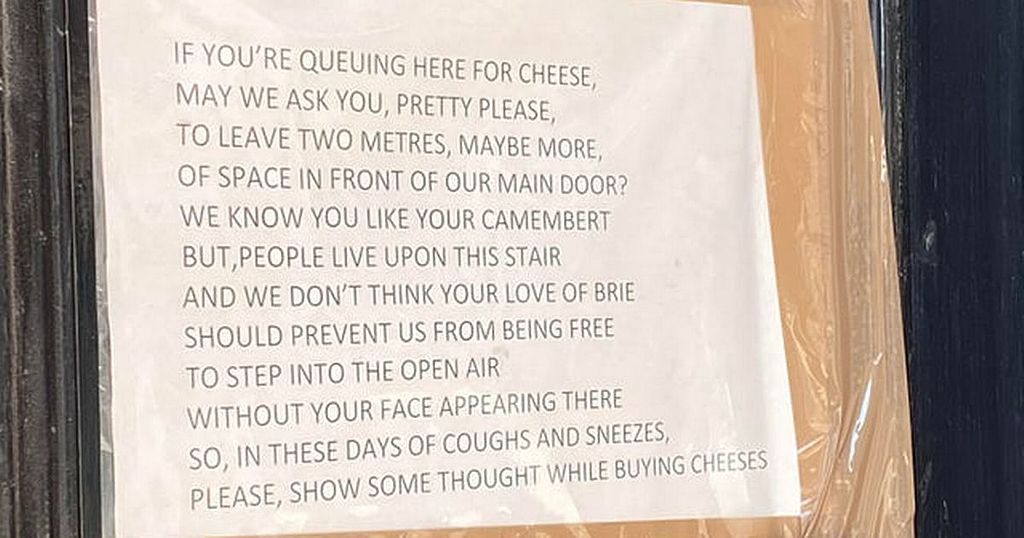 IF YOU'RE QUEUING HERE FOR CHEESE,
MAY WE ASK YOU, PRETTY PLEASE,
TO LEAVE TWO METRES, MAYBE MORE,
OF SPACE IN FRONT OF OUR MAIN DOOR?
WE KNOW YOU LIKE YOUR CAMEMBERT
BUT,PEOPLE LIVE UPON THIS STAIR
AND WE DON'T THINK YOUR LOVE OF BRIE
SHOULD PREVENT US FROM BEING FREE
TO STEP INTO THE OPEN AIR
WITHOUT YOUR FACE APPEARING THERE
SO, IN THESE DAYS OF COUGHS AND SNEEZES,
PLEASE, SHOW SOME THOUGHT WHILE BUYING CHEESES